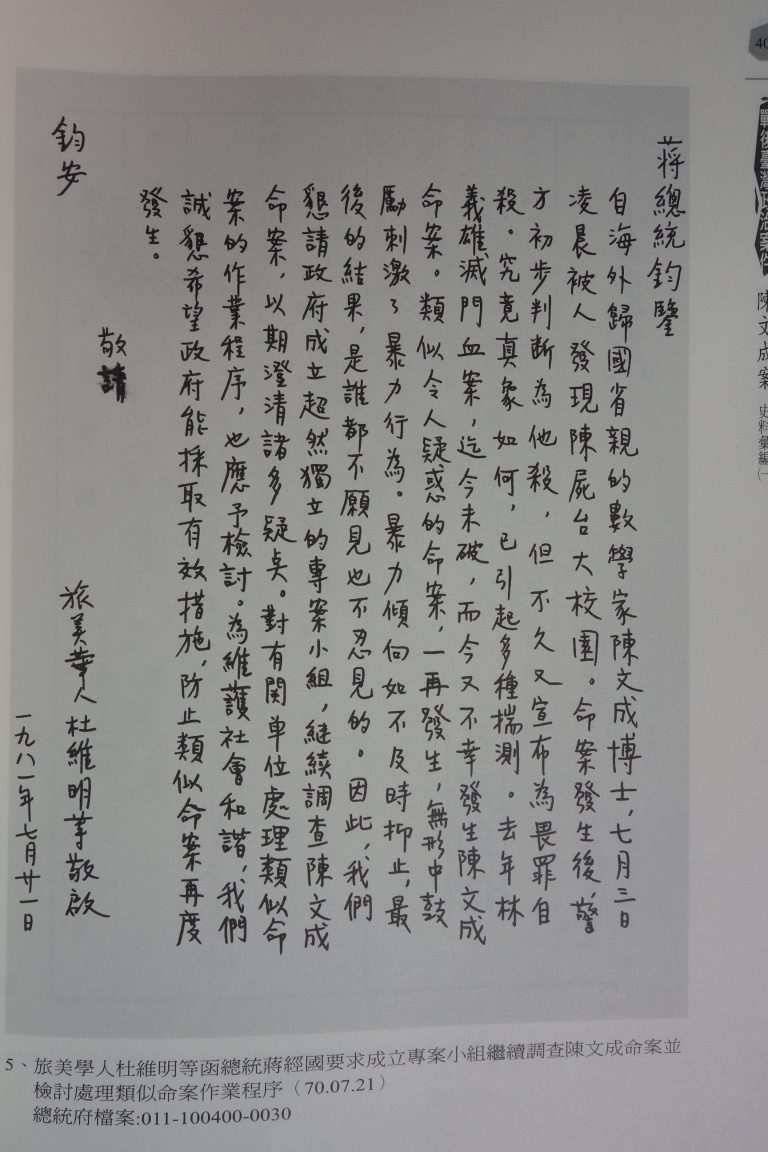 40
戰後臺灣政治案件
陳文成案 史料彙編(一
蔣總統鈞鑒
自海外歸國省親的數學家陳文成博士,七月三日
凌晨被人發現陳屍台大校園。命案發生後,警
方初步判断為他殺,但不久又宣布為畏罪自
殺。究竟真象如何,已引起多種揣測。去年林
義雄滅門血案,迄今未破,而今又不幸發生陳文成
命案。類似令人疑惑的命案,一再發生,無形中鼓
勵刺激了暴力行為。暴力傾向如不及時抑止,最
後的結果,是誰都不願見也不忍見的。因此,我們
懇請政府成立超然獨立的專案小組,继续調查陳文成
命案,以期澄清諸多疑点。對有関单位處理類似命
案的作業程序,也應予檢討。為維護社會和諧,我們
誠懇希望政府能採取有效措施,防止類似命案再度
發生。
敬請
鈞安
旅美華人杜維明等敬啟
一九八一年七月廿一日
5、旅美學人杜維明等函總統蔣經國要求成立專案小組繼續調查陳文成命案並
檢討處理類似命案作業程序(70.07.21)
總統府檔案:011-100400-0030